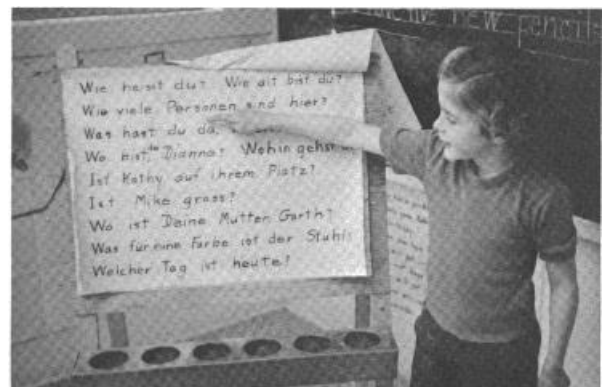 new pencils
Wie heisst du? Wie alt bist du?
Wie viele Personen sind hier?
Was hast du da,
Wo bist du Dianna? Wohin gehst
Ist Kathy auf ihrem Platz?
Ist Mike gross?
Wo ist Deine Mutter, Garth?
Was für eine Farbe ist der Stuhl?
Welcher Tag ist heute?